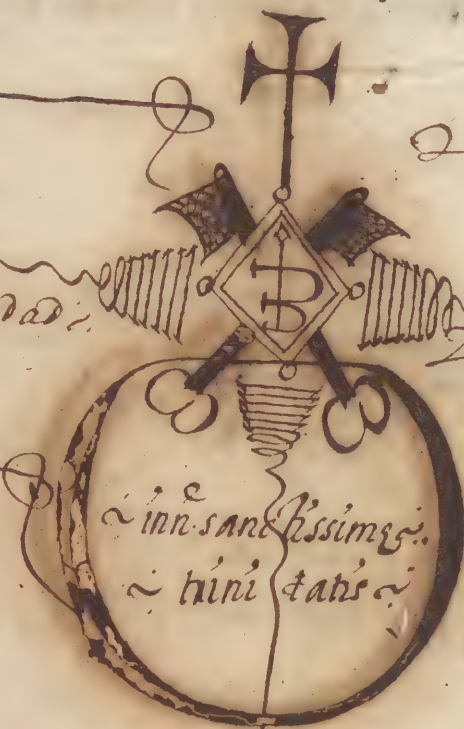 dad
~ inn͂e sanctissimę
~ trini tatis ~